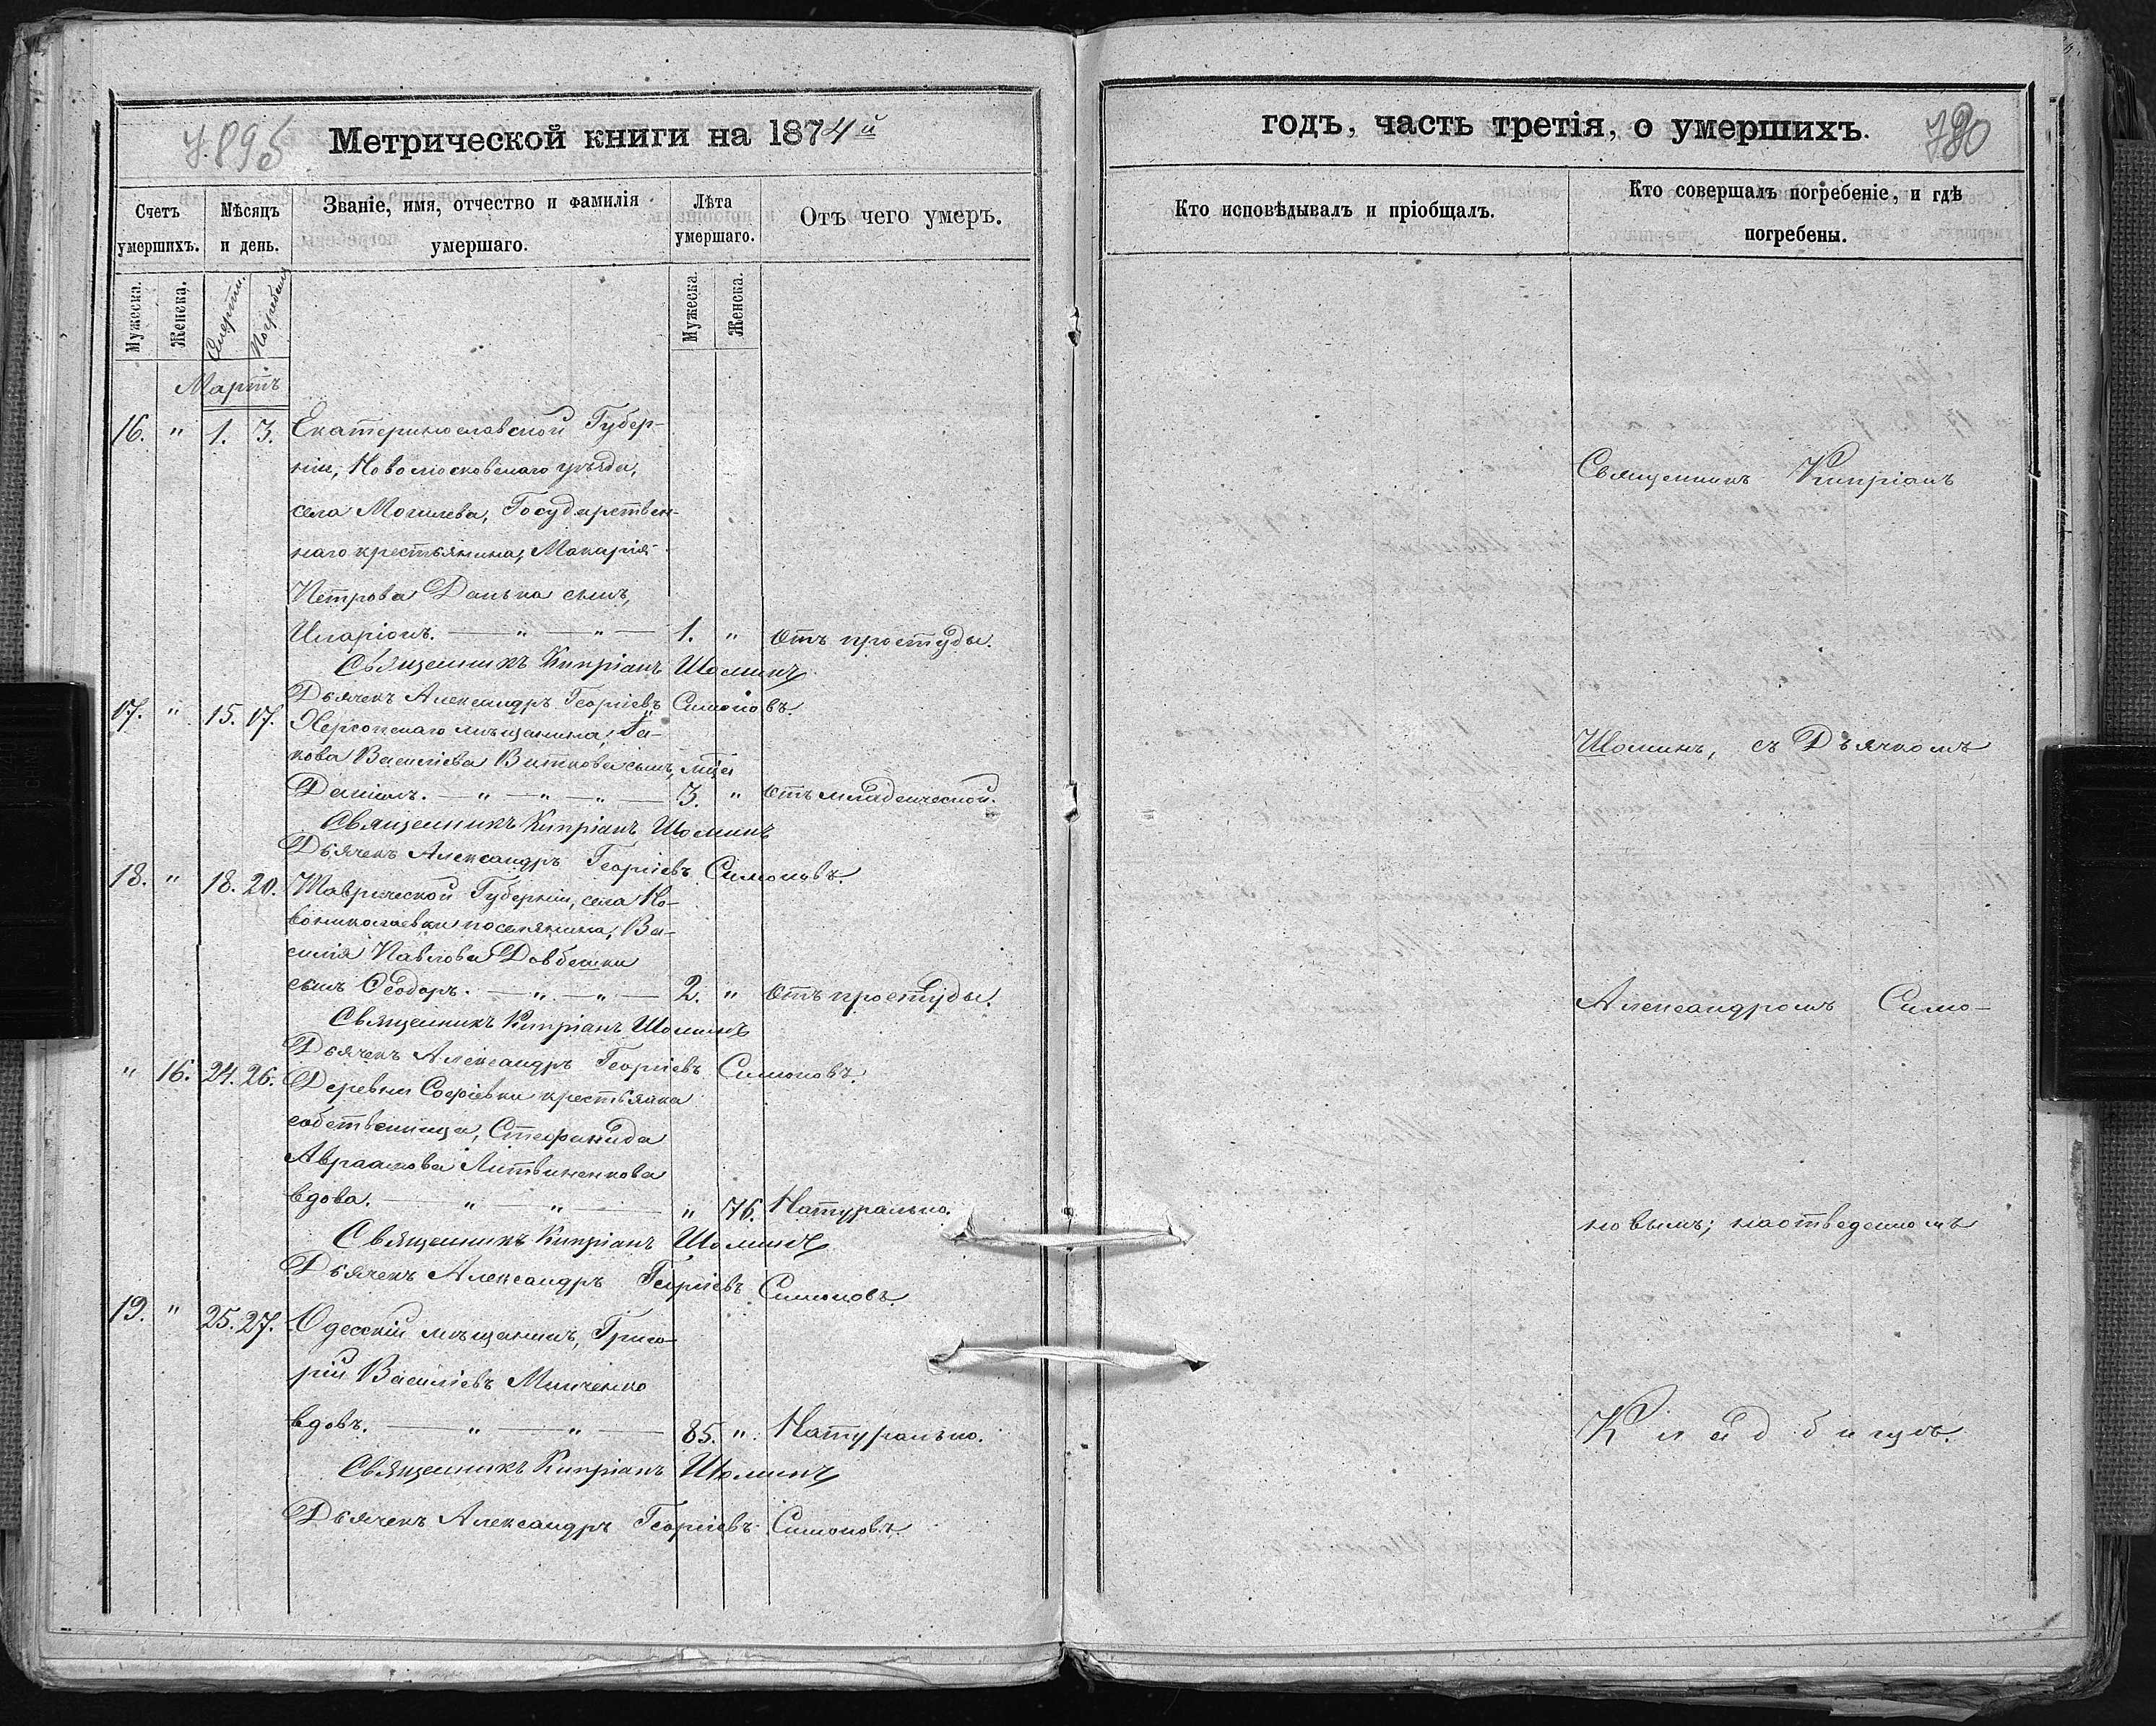 Метрической книги на 1874й
Счетъ умершихъ.
Мѣсяцъ и день.
Званіе, имя, отчество и фамилія умершаго.
Лѣта умершаго.
Отъ чего умеръ.
Мужеска. Женска. Смерти. Погребенія Мужеска. Женска.
Мартъ
16. " 1. 3. Екатеринославской Губер-
ніи, Новомосковскаго уѣзда,
села Могилева, Государствен-
наго крестьянина, Макарія
Петрова Данька сынъ,
Иларіонъ. — " — " — 1. " отъ простуды.
Священникъ Кипріанъ Шоминъ
Дьячекъ Александръ Георгіевъ Симоновъ.
17. " 15. 17. Херсонскаго мѣщанина, Іа-
кова Васильева Виткова сынъ,
Даніилъ. — " — " — " — 3. " отъ младенческой.
Священникъ Кипріанъ Шоминъ
Дьячекъ Александръ Георгіевъ Симоновъ.
18. " 18. 20. Таврической Губерніи, села Но-
вониколаевки поселянина, Ва-
силія Павлова Довбешки
сынъ Ѳеодоръ. — " — " — 2. " отъ простуды.
Священникъ Кипріанъ Шоминъ
Дьячекъ Александръ Георгіевъ Симоновъ.
" 16. 24. 26. Деревни Софіевки крестьянка
собственница, Стефанида
Авраамова Литвиненкова
вдова. — " — " — " 76. Натурально.
Священникъ Кипріанъ Шоминъ
Дьячекъ Александръ Георгіевъ Симоновъ.
19. " 25. 27. Одесскій мѣщанинъ, Григо-
рій Василіевъ
вдовъ. — " — " — 85. " Натурально.
Священникъ Кипріанъ Шоминъ
Дьячекъ Александръ Георгіевъ Симоновъ.
годъ, часть третія, о умершихъ.
Кто исповѣдывалъ и пріобщалъ.
Кто совершалъ погребеніе, и гдѣ
погребены.
Священникъ Кипріанъ
Шоминъ, съ Дьячкомъ
Александромъ Симо-
новымъ; на отведенномъ
Кладбищѣ.